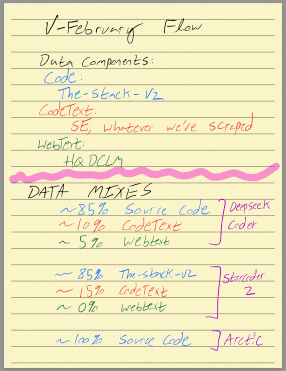 V-February Flow
Data Components:
Code:
The-Stack-V2
CodeText:
SE, whatever we've scraped
WebText:
HQ DCLM
DATA MIXES
~85% Source Code
~10% CodeText
~5% Webtext
Deepseek
Coder
~85% The-stack-V2
~15% CodeText
~0% Webtext
Starcoder
2
~100% Source Code
Arctic